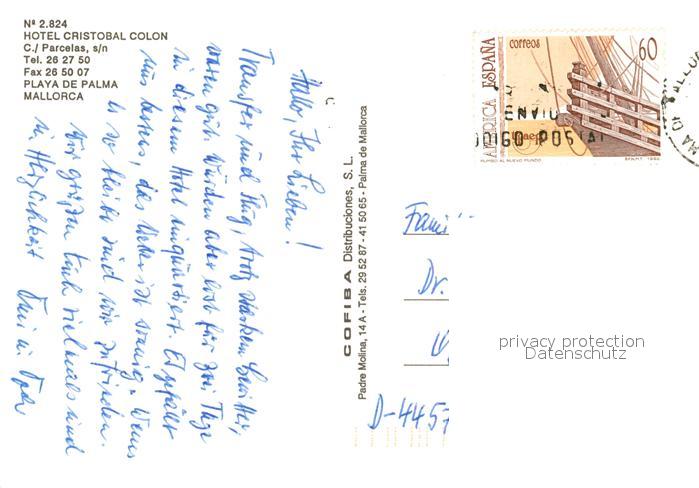 Nº 2.824
HOTEL CRISTOBAL COLON
C./ Parcelas, s/n
Tel. 26 27 50
Fax 26 50 07
PLAYA DE PALMA
MALLORCA
Hallo, Ihr Lieben!
Transfer und Flug, trotz starkem Gewitter,
waren gut. Wurden aber erst für zwei Tage
in diesem Hotel einquartiert. Es gefällt
uns bestens, das Wetter ist sonnig. Wenn
es so bleibt sind wir zufrieden.
Wir grüßen Euch vielmals und
in Herzlichkeit
COFIBA Distribuciones, S. L.
Padre Molina, 14 A - Tels. 29 52 87 - 41 50 65 - Palma de Mallorca
AMERICA ESPAÑA
correos
60
RUMBO AL NUEVO MUNDO
ENVIO
POSTAL
Dr.
D-4457
privacy protection
Datenschutz